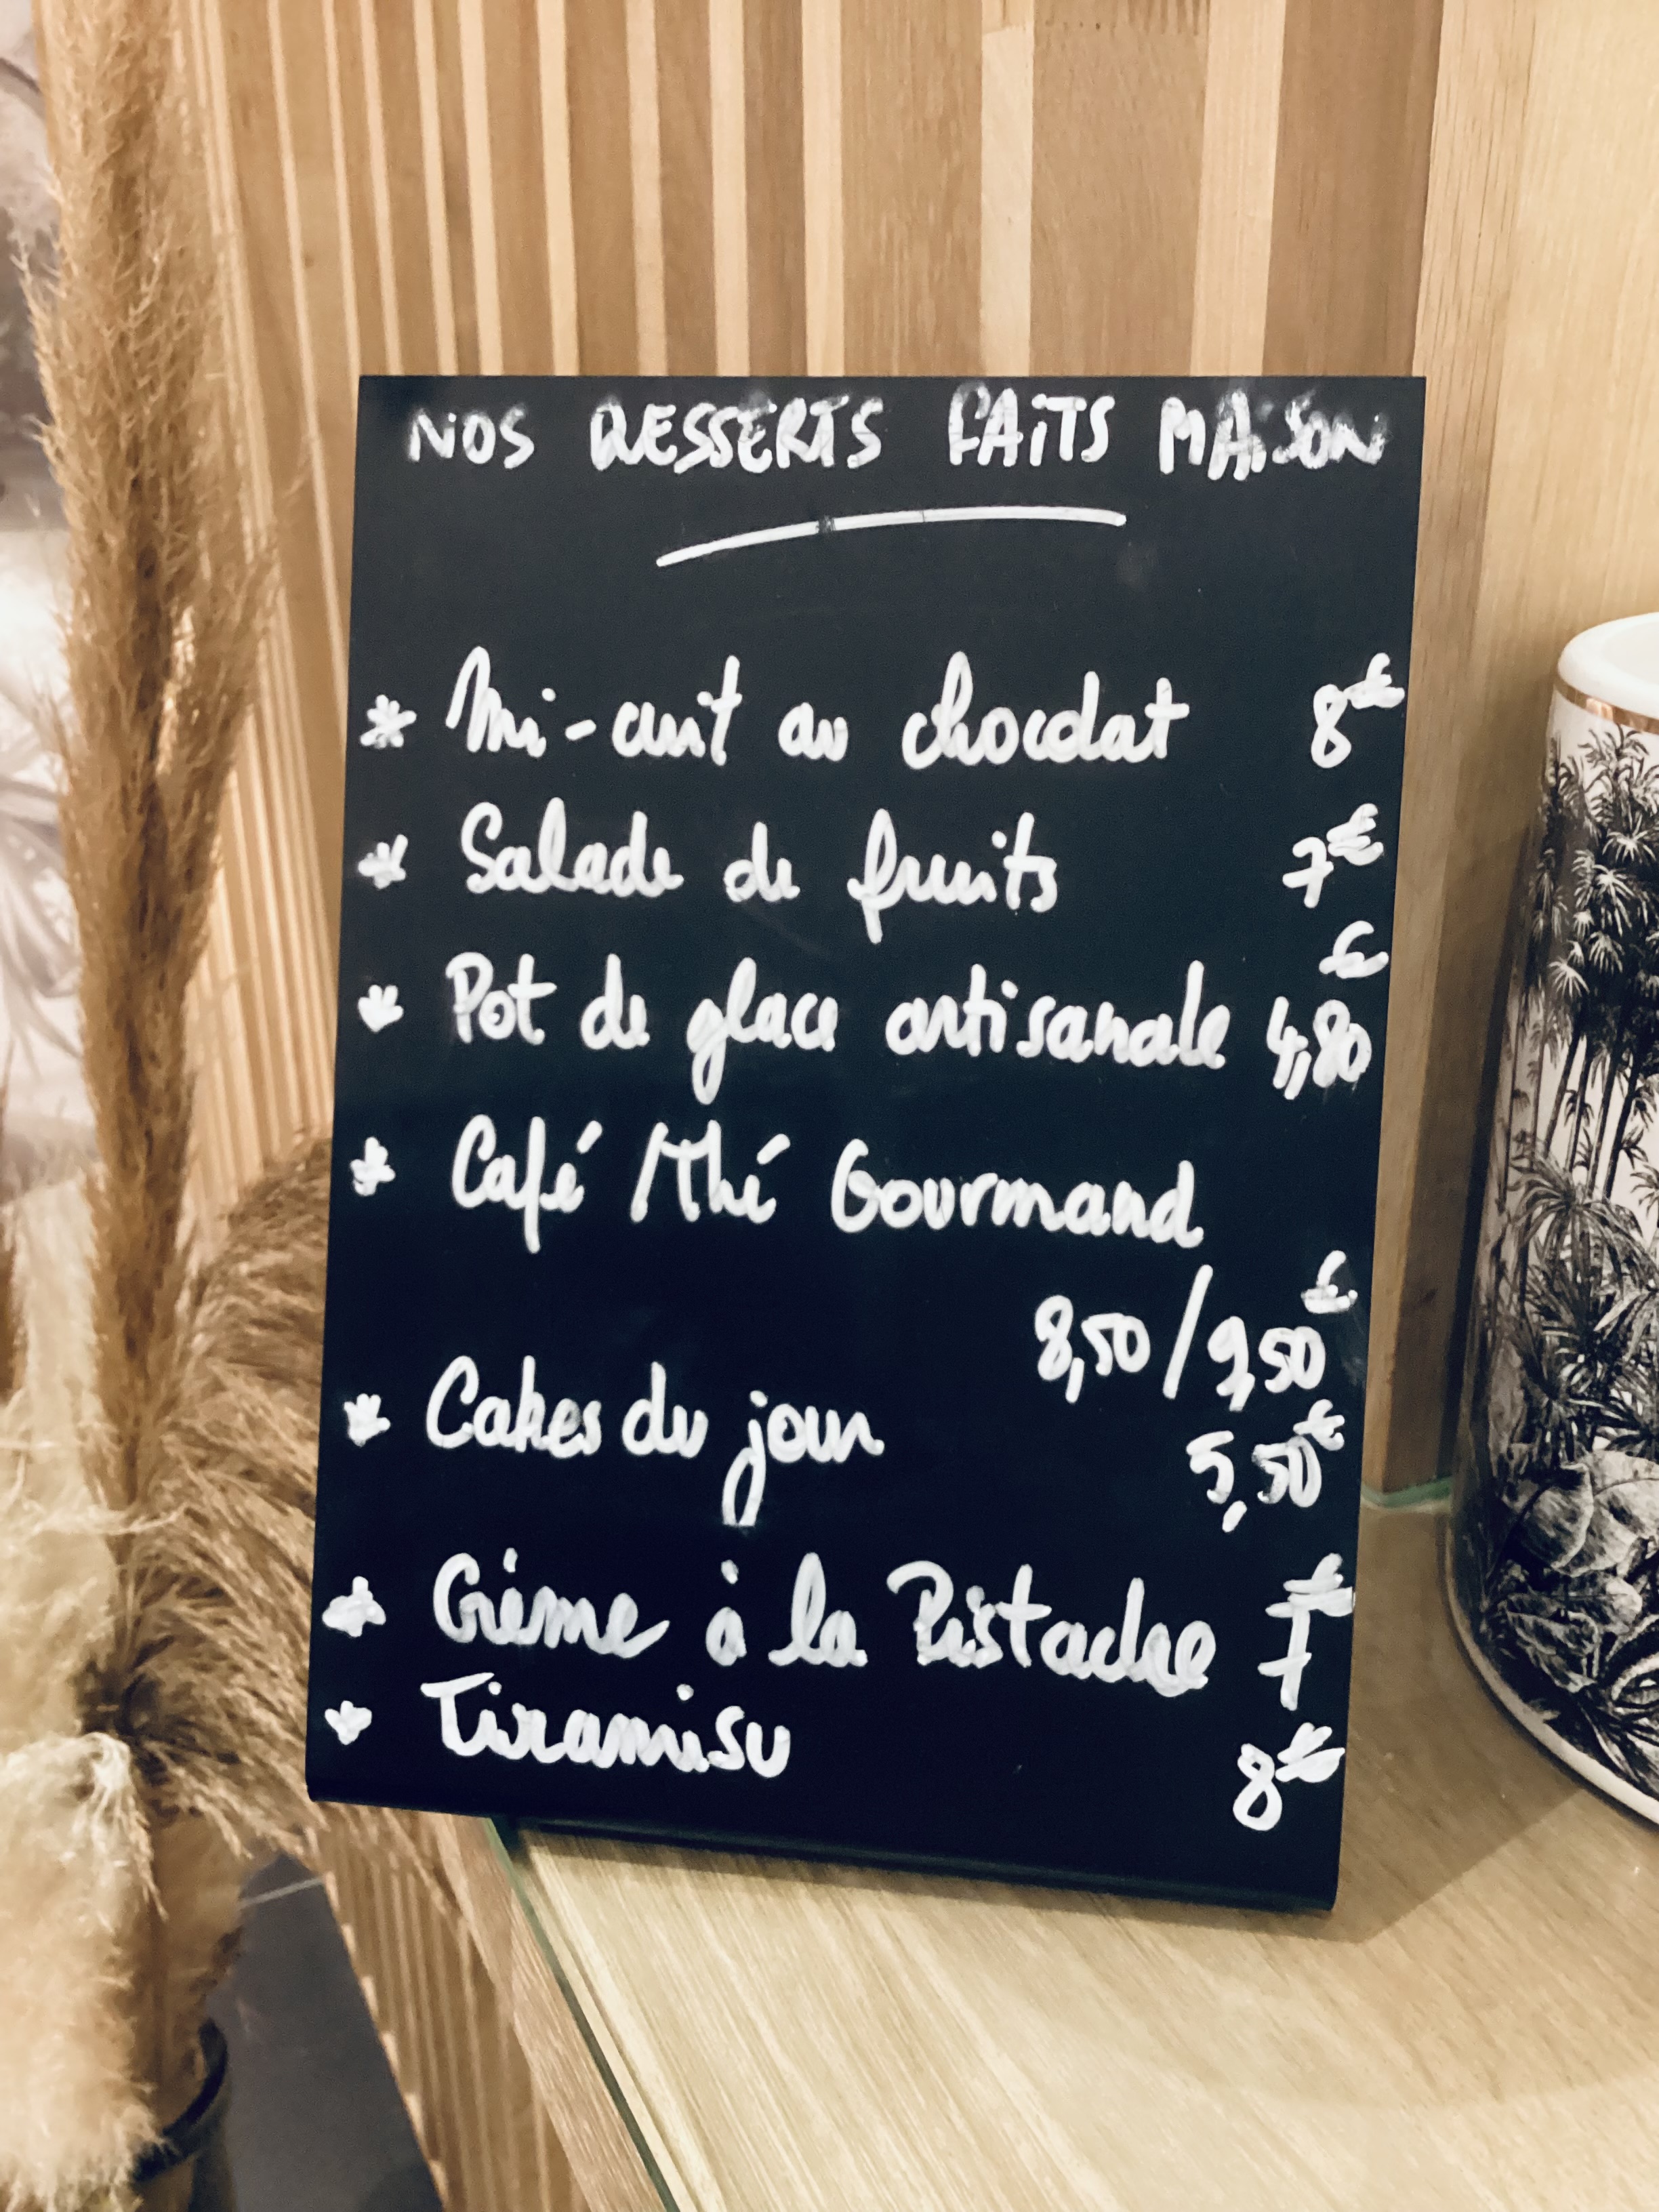 NOS DESSERTS FAITS MAISON
* Mi-cuit au chocolat 8€
* Salade de fruits 7€
* Pot de glace artisanale 4,80€
* Café /Thé Gourmand
8,50/9,50€
* Cakes du jour 5,50€
* Crème à la Pistache 7€
* Tiramisu 8€